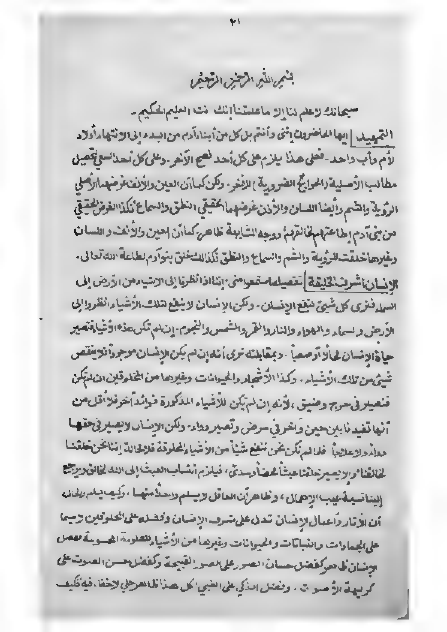 ٢١
بسم الله الرحمن الرحيم
سبحانك لا علم لنا إلا ما علمتنا إنك أنت العليم الحكيم .
التمهيد أيها الحاضرون إنني وأنتم بل كل من أبناء آدم من البدء إلى الانتهاء أولاد
لأم وأب واحد . فعلى هذا يلزم على كل أحد نصح الآخر . وعلى كل أحد سعي تحصيل
مطالب الأصلية والحوائج الضرورية للآخر . ولكن كما أن العين والأنف غرضهما الأصلي
الرؤية والشم وأيضا اللسان والأذن غرضهما الحقيقي النطق والسماع كذا الغرض الحقيقي
من بني آدم إطاعتهم لخالقهم ووجه المشابهة ظاهر كما أن العين والأنف واللسان
وغيرها خلقت للرؤية والشم والسماع والنطق كذلك خلق بنو آدم لطاعة الله تعالى .
الإنسان أشرف الخليقة تفصيله اسمعوا مني . إننا إذا نظرنا إلى الأشياء من الأرض إلى
السماء فنرى كل شيئ ينفع الإنسان . ولكن الإنسان لا ينفع لتلك الأشياء انظروا إلى
الأرض والسماء والهواء والنار والقمر والشمس والنجوم . إن لم تكن هذه الأشياء تصير
حياة الإنسان محالا أو صعبا . وبمقابلته نرى أنه إن لم يكن الإنسان موجودا لا ينقص
شيئ من تلك الأشياء . وكذا الأشجار والحيوانات وغيرها من المخلوقين إن لم تكن
فنصير في حرج وضيق ، لأنه إن لم تكن للأشياء المذكورة فوائد أخر فلا أقل من
أنها تفيدنا بين حين وآخر في مرض وتصير دواء . ولكن الإنسان لا يصير في حقها
دواء ولا علاجا فإذا لم نكن نحن ننفع شيئا من الأشياء المخلوقة فلا محالة إننا نحن خلقنا
لخالقنا وإلا يصير خلقنا عبثا محضا وسدى ، فيلزم انتساب العبث إلى الله الخالق ويرجع
إلينا عيب الإهمال ، وظاهر أن العاقل لا يسلم واحدا منهما . وكيف يسلم
أن الآثار وأعمال الإنسان تدل على شرف الإنسان وفضله على المخلوقين لا سيما
على الجمادات والنباتات والحيوانات وغيرها من الأشياء المعلومة المحسوسة ففضل
الإنسان ظاهر كفضل حسان الصور على الصور القبيحة وكفضل حسن الصوت على
كريهة الأصوات . وفضل الذكي على الغبي كل هذا ظاهر جلي لا خفاء فيه فكيف